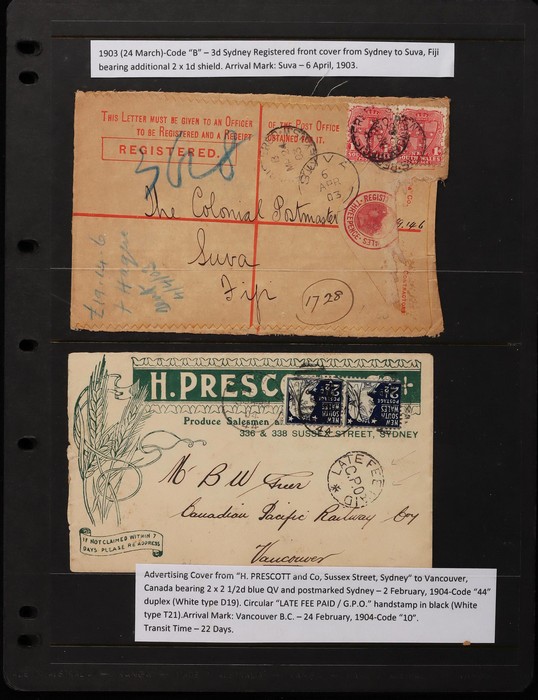 1903 (24 March)-Code “B” – 3d Sydney Registered front cover from Sydney to Suva, Fiji
bearing additional 2 x 1d shield. Arrival Mark: Suva – 6 April, 1903.
THIS LETTER MUST BE GIVEN TO AN OFFICER OF THE POST OFFICE
TO BE REGISTERED AND A RECEIPT OBTAINED FOR IT.
REGISTERED.
6
APR
03
The Colonial Postmaster
Suva
Fiji
1728
£19.14.6
H. PRESCO
Produce Salesmen
336 & 338 SUSSEX STREET, SYDNEY
NEW
SOUTH
WALES
POSTAGE
2½
NEW
SOUTH
WALES
POSTAGE
2½
LATE FEE
G.P.O.
PAID
Mr B W Greer
Canadian Pacific Railway Coy
Vancouver
IF NOT CLAIMED WITHIN 7
DAYS PLEASE RE-ADDRESS
Advertising Cover from “H. PRESCOTT and Co, Sussex Street, Sydney” to Vancouver,
Canada bearing 2 x 2 1/2d blue QV and postmarked Sydney – 2 February, 1904-Code “44”
duplex (White type D19). Circular “LATE FEE PAID / G.P.O.” handstamp in black (White
type T21).Arrival Mark: Vancouver B.C. – 24 February, 1904-Code “10”.
Transit Time – 22 Days.